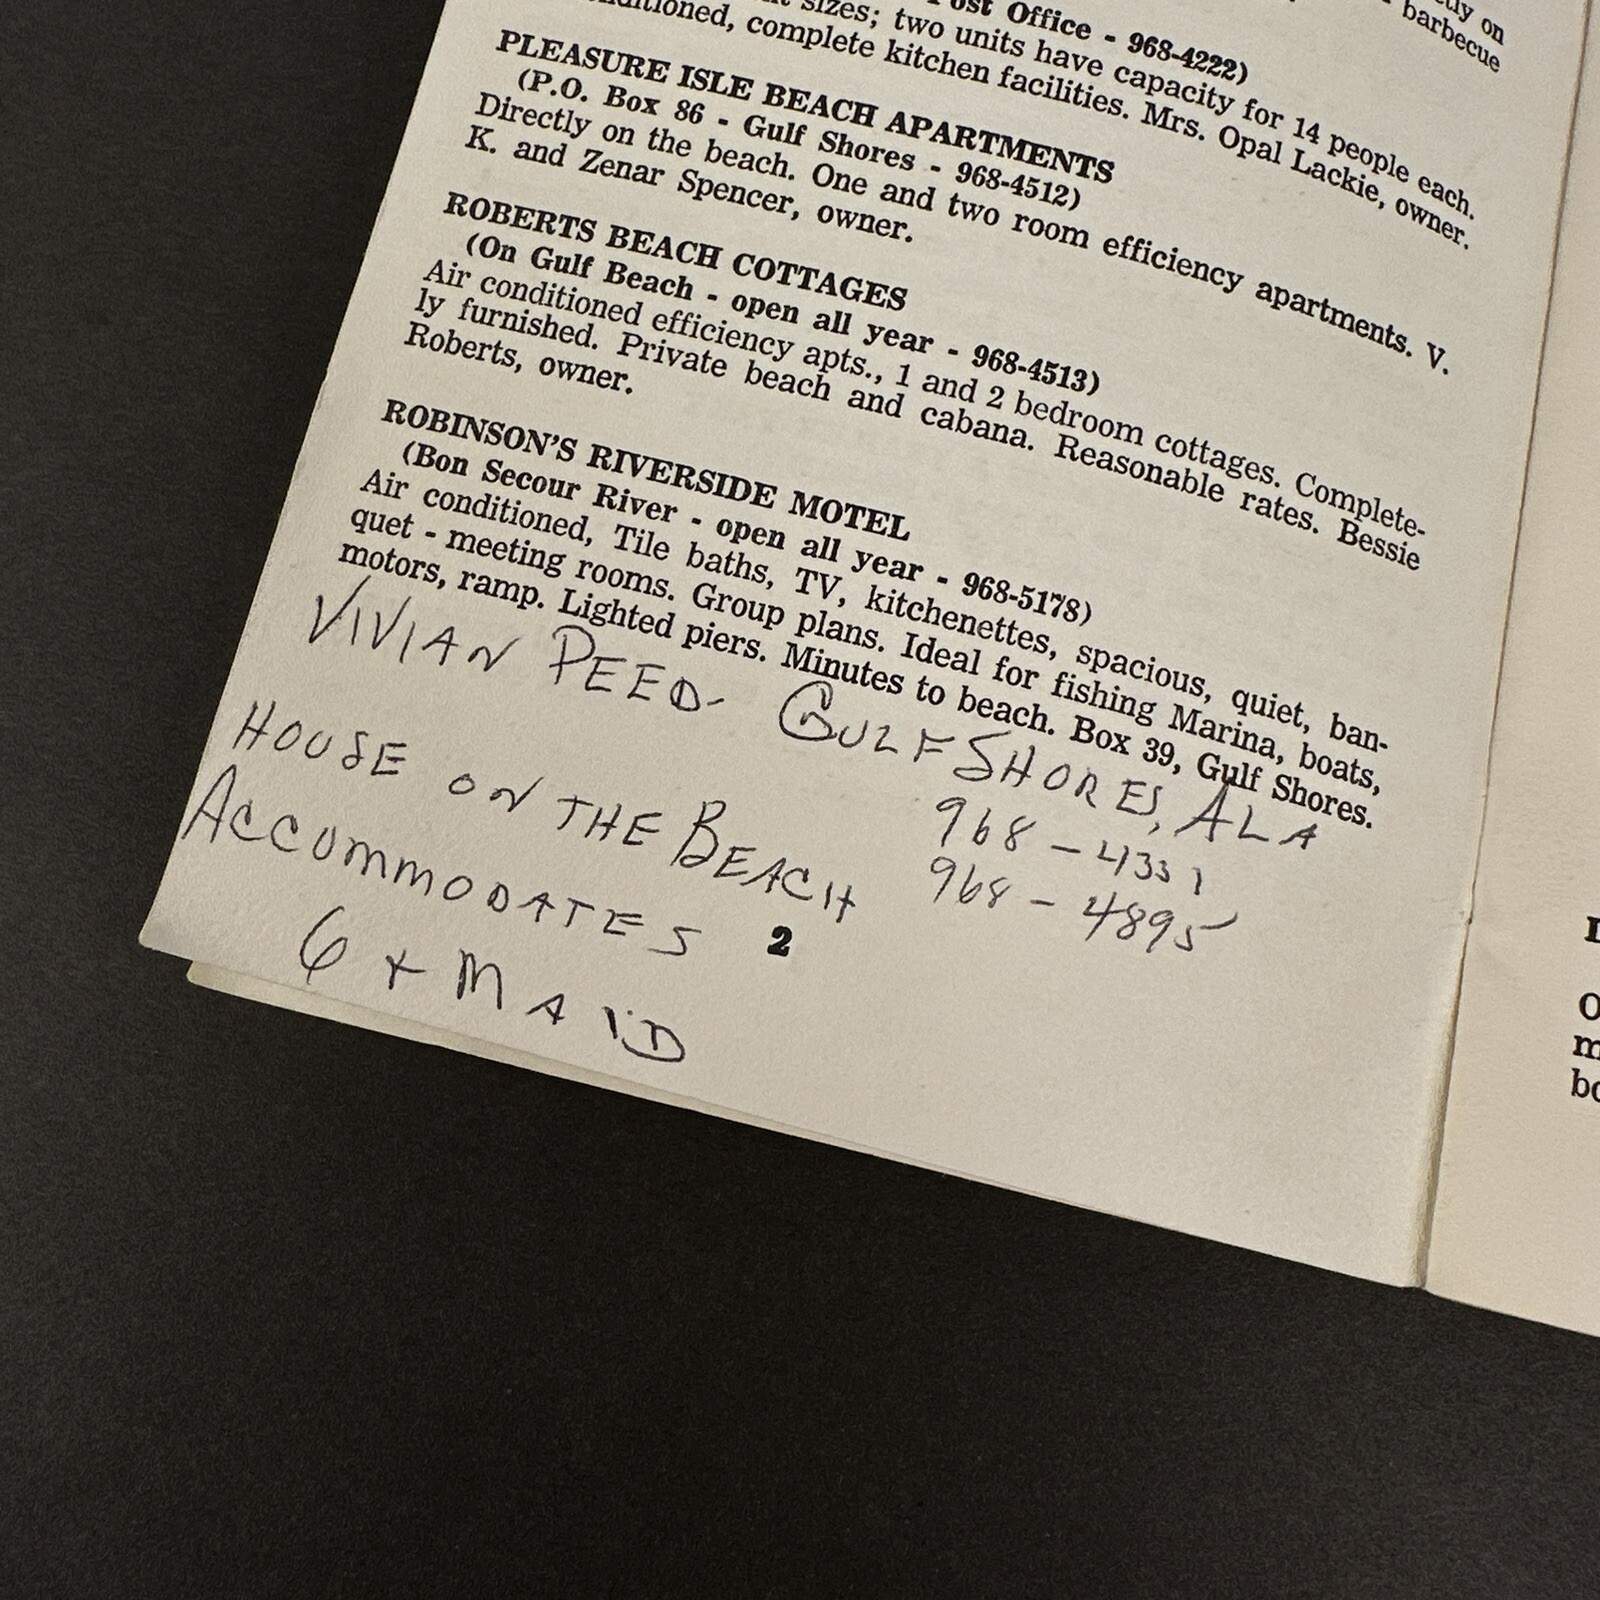 ctly on
barbecue
Post Office - 968-4222)
sizes; two units have capacity for 14 people each.
conditioned, complete kitchen facilities. Mrs. Opal Lackie, owner.
PLEASURE ISLE BEACH APARTMENTS
(P.O. Box 86 - Gulf Shores - 968-4512)
Directly on the beach. One and two room efficiency apartments. V.
K. and Zenar Spencer, owner.
ROBERTS BEACH COTTAGES
(On Gulf Beach - open all year - 968-4513)
Air conditioned efficiency apts., 1 and 2 bedroom cottages. Complete-
ly furnished. Private beach and cabana. Reasonable rates. Bessie
Roberts, owner.
ROBINSON'S RIVERSIDE MOTEL
(Bon Secour River - open all year - 968-5178)
Air conditioned, Tile baths, TV, kitchenettes, spacious, quiet, ban-
quet - meeting rooms. Group plans. Ideal for fishing Marina, boats,
motors, ramp. Lighted piers. Minutes to beach. Box 39, Gulf Shores.
VIVIAN PEED - GULF SHORES, ALA
968-4331
968-4895
HOUSE ON THE BEACH
ACCOMMODATES
6 + MAID
2